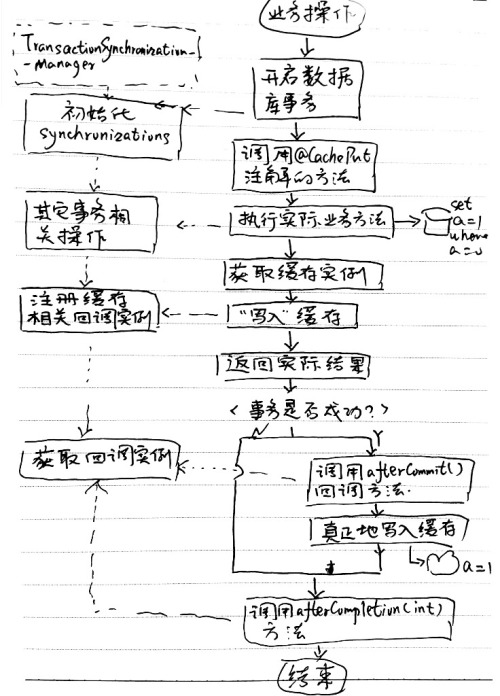 业务操作
TransactionSynchronization-
-Manager
开启数据
库事务
初始化
Synchronizations
调用@CachePut
注解的方法
其它事务相
关操作
执行实际业务方法
set
a=1
where
a=0
获取缓存实例
注册缓存
相关回调实例
"写入"缓存
返回实际结果
<事务是否成功?>
N
Y
获取回调实例
调用afterCommit()
回调方法.
真正地写入缓存
a=1
调用afterCompletion(int)
方法
结束